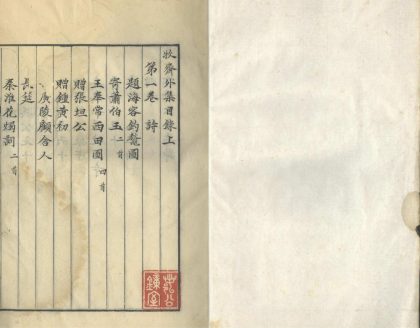 牧齋外集目錄上
第一卷 詩
題海客釣鰲圖
寄蕭伯玉 二首
王奉常西田圖 四首
贈張坦公
贈鍾黃初
廣陵顧舍人
長筵
秦淮花燭詞 二首